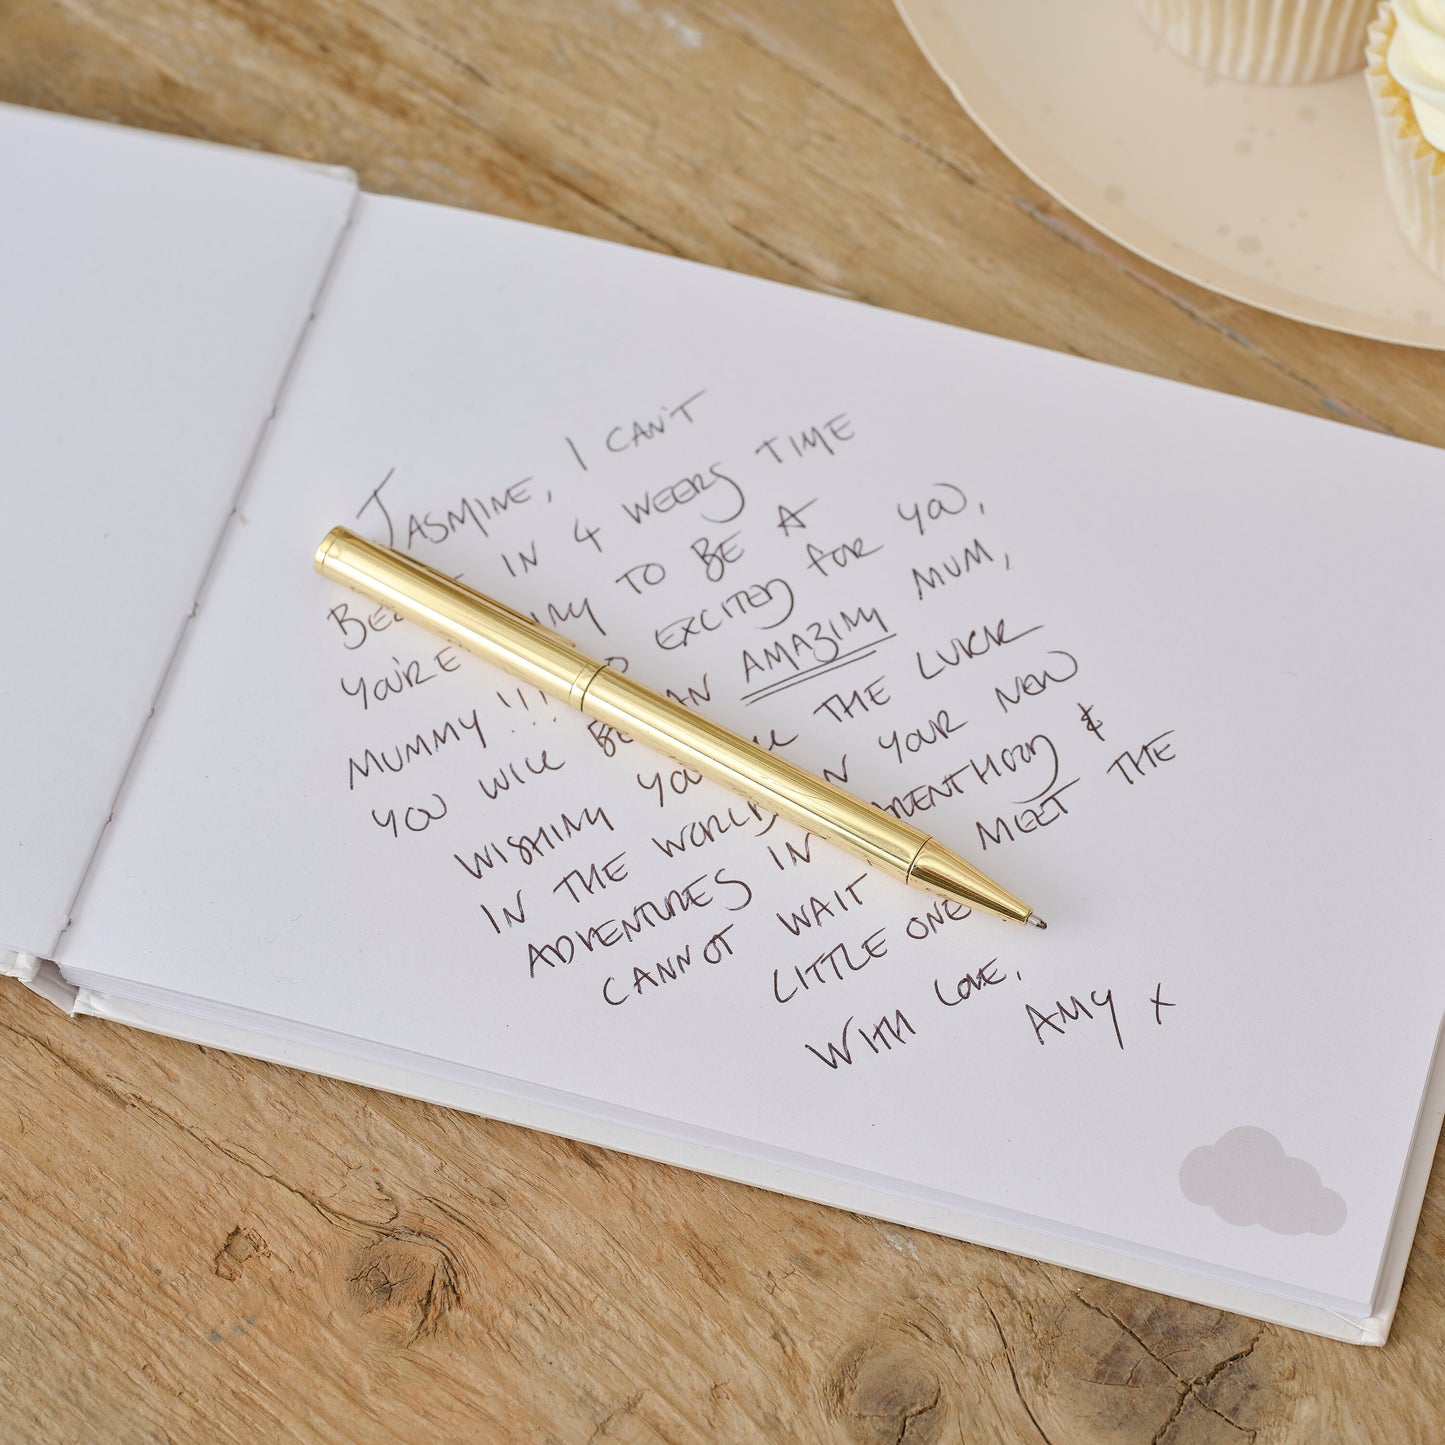 JASMINE, I CAN'T
IN 4 WEEKS TIME
YOU'RE TO BE A
MUMMY!!! EXCITED FOR YOU,
YOU WILL BE AN AMAZING MUM,
WISHING YOU THE LUCK
IN THE WORLD IN YOUR NEW
ADVENTURES IN PARENTHOOD &
CANNOT WAIT MEET THE
LITTLE ONE
WITH LOVE,
AMY X